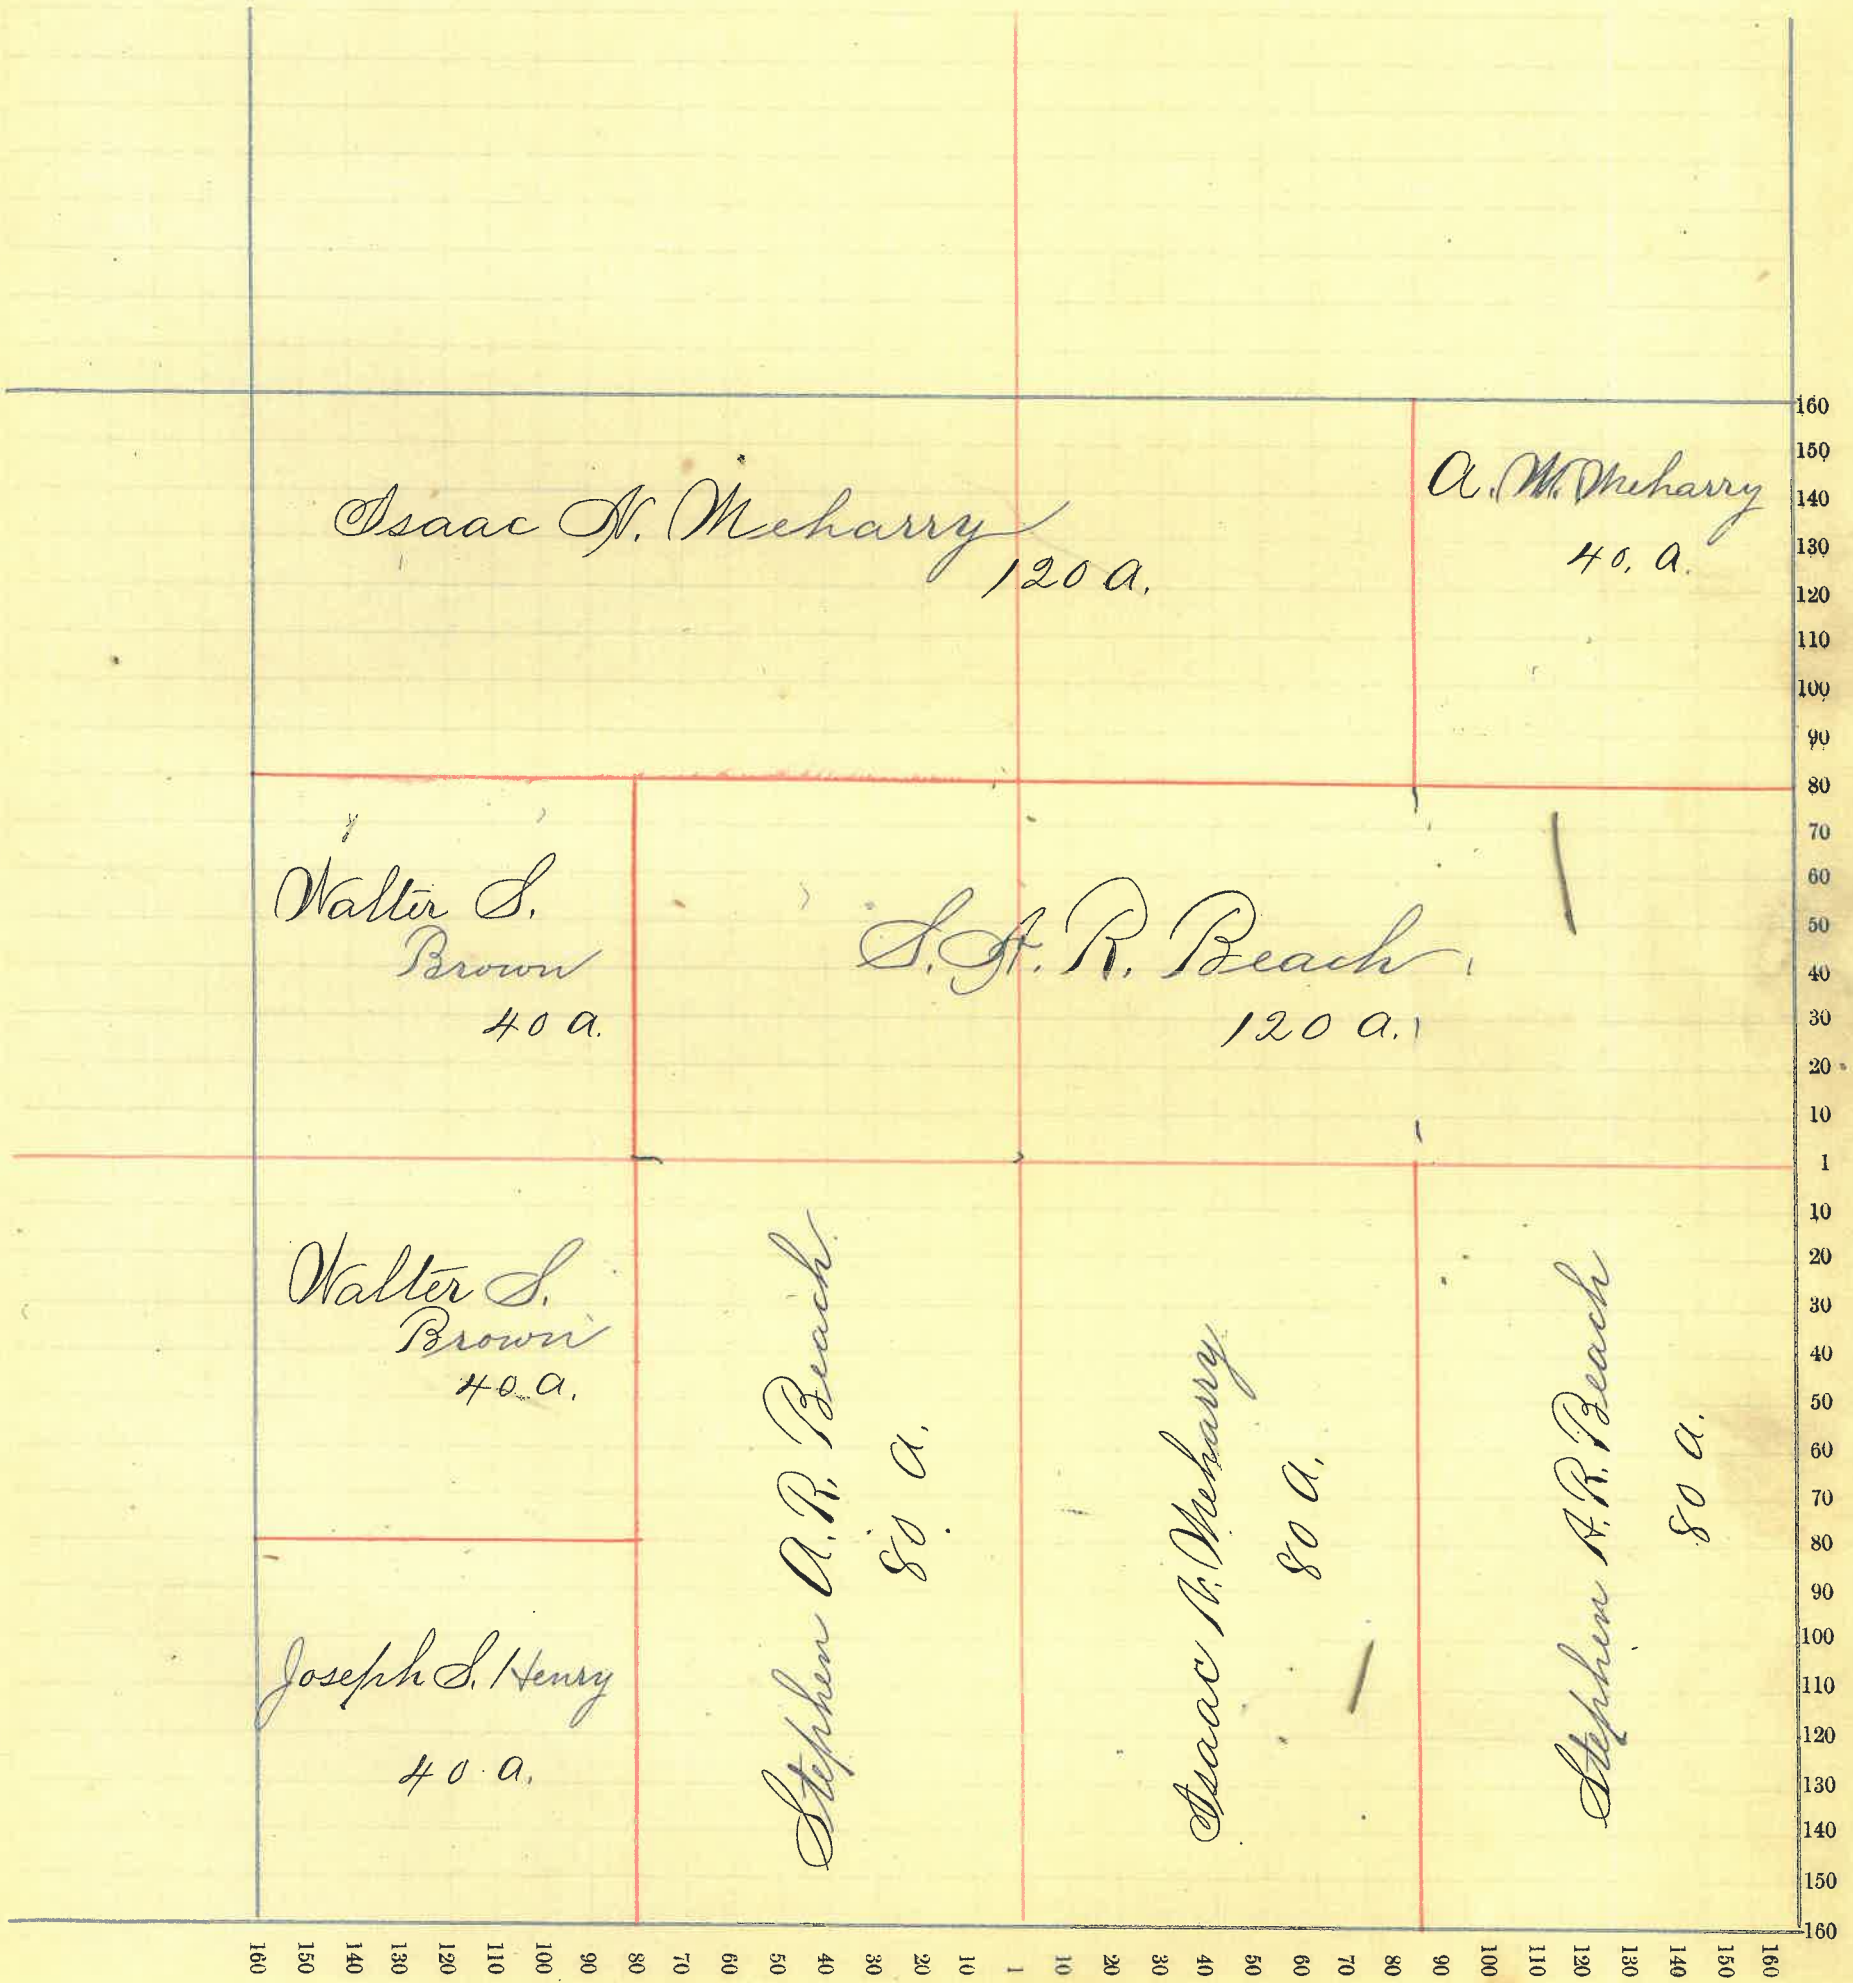 Isaac N. Meharry
120 a.
A. W. Meharry
40. a.
Walter S.
Brown
40 a.
S. A. R. Beach
120 a.
Walter S.
Brown
40 a.
Joseph S. Henry
40 a.
Stephen A. R. Beach
80 a.
Isaac N. Meharry
80 a.
Stephen A. R. Beach
80 a.
160
150
140
130
120
110
100
90
80
70
60
50
40
30
20
10
1
10
20
30
40
50
60
70
80
90
100
110
120
130
140
150
160
160 150 140 130 120 110 100 90 80 70 60 50 40 30 20 10 1 10 20 30 40 50 60 70 80 90 100 110 120 130 140 150 160